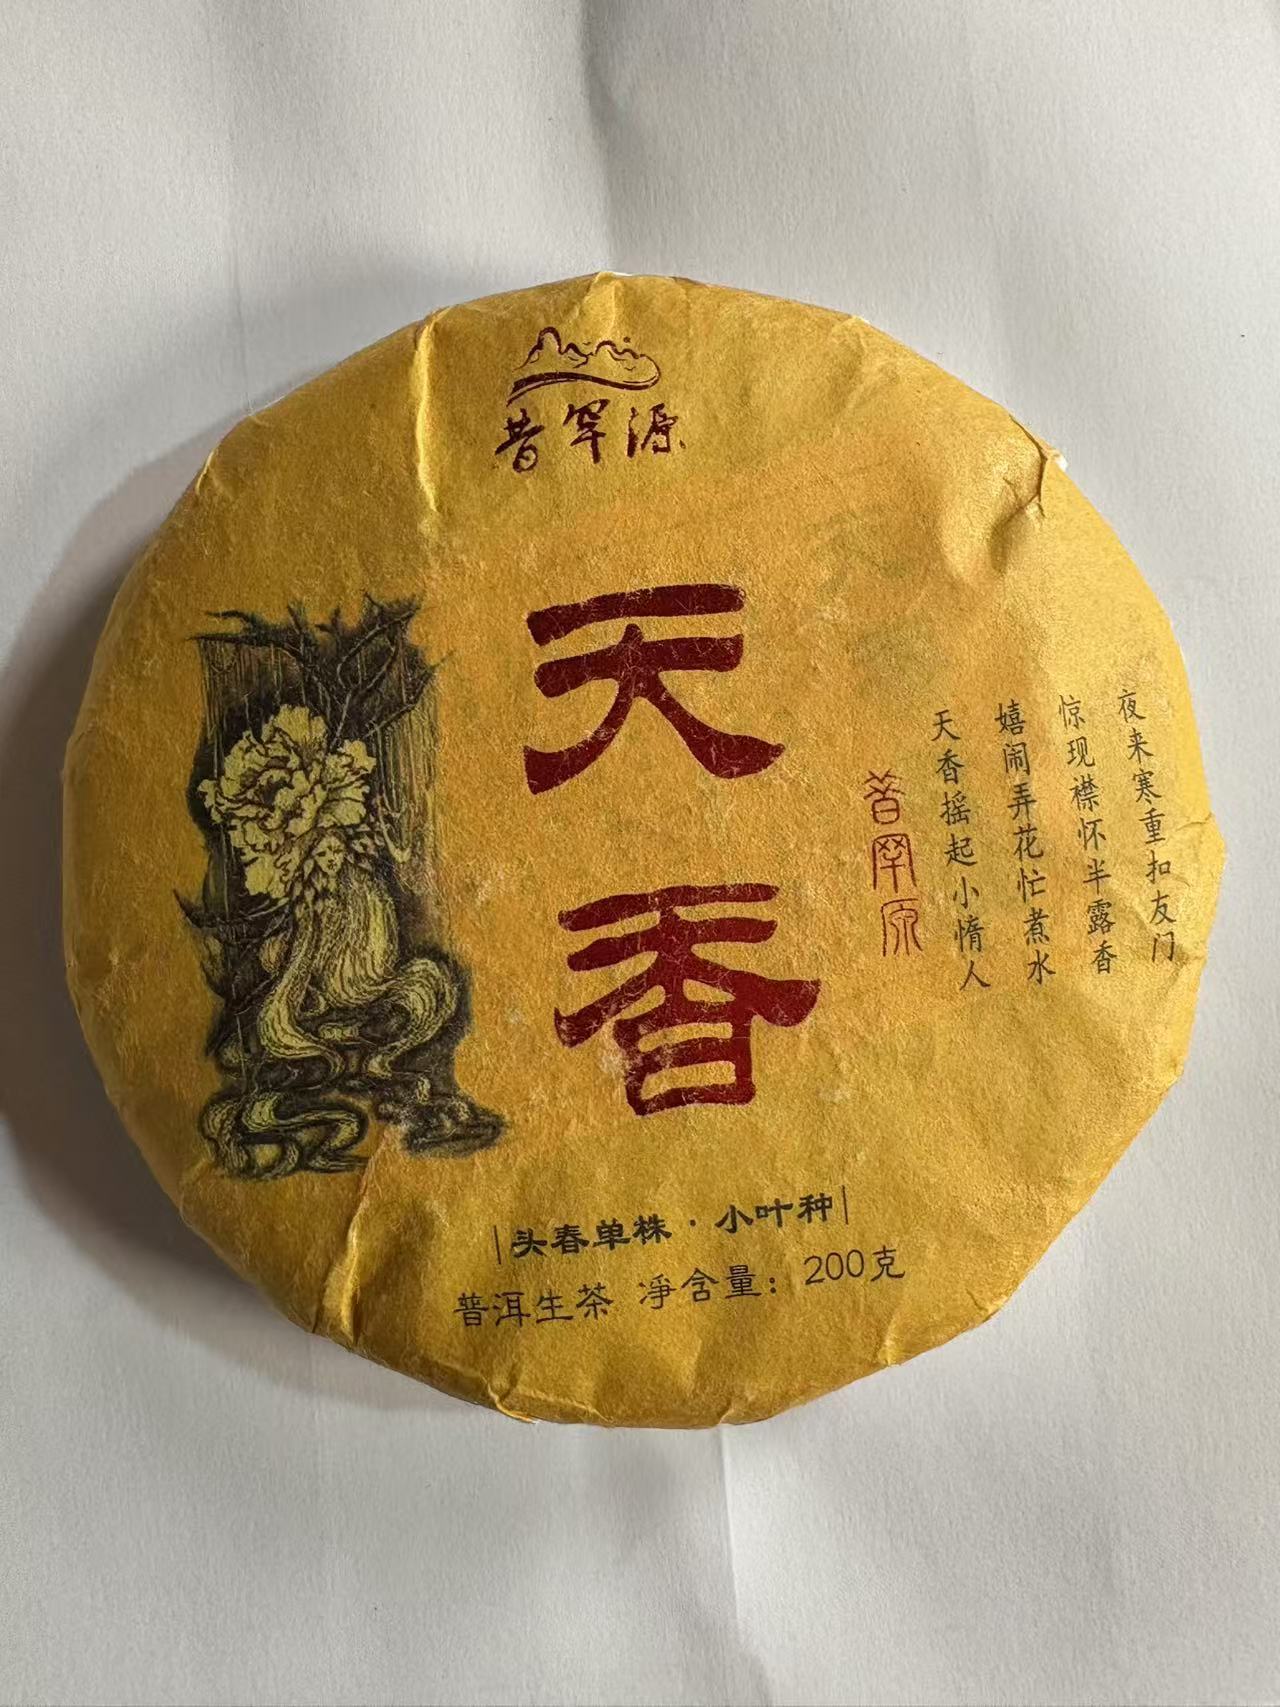 昔罕源
天香
夜来寒重扣友门
惊现襟怀半露香
嬉闹弄花忙煮水
天香摇起小惰人
昔罕原
头春单株·小叶种
普洱生茶 淨含量：200克